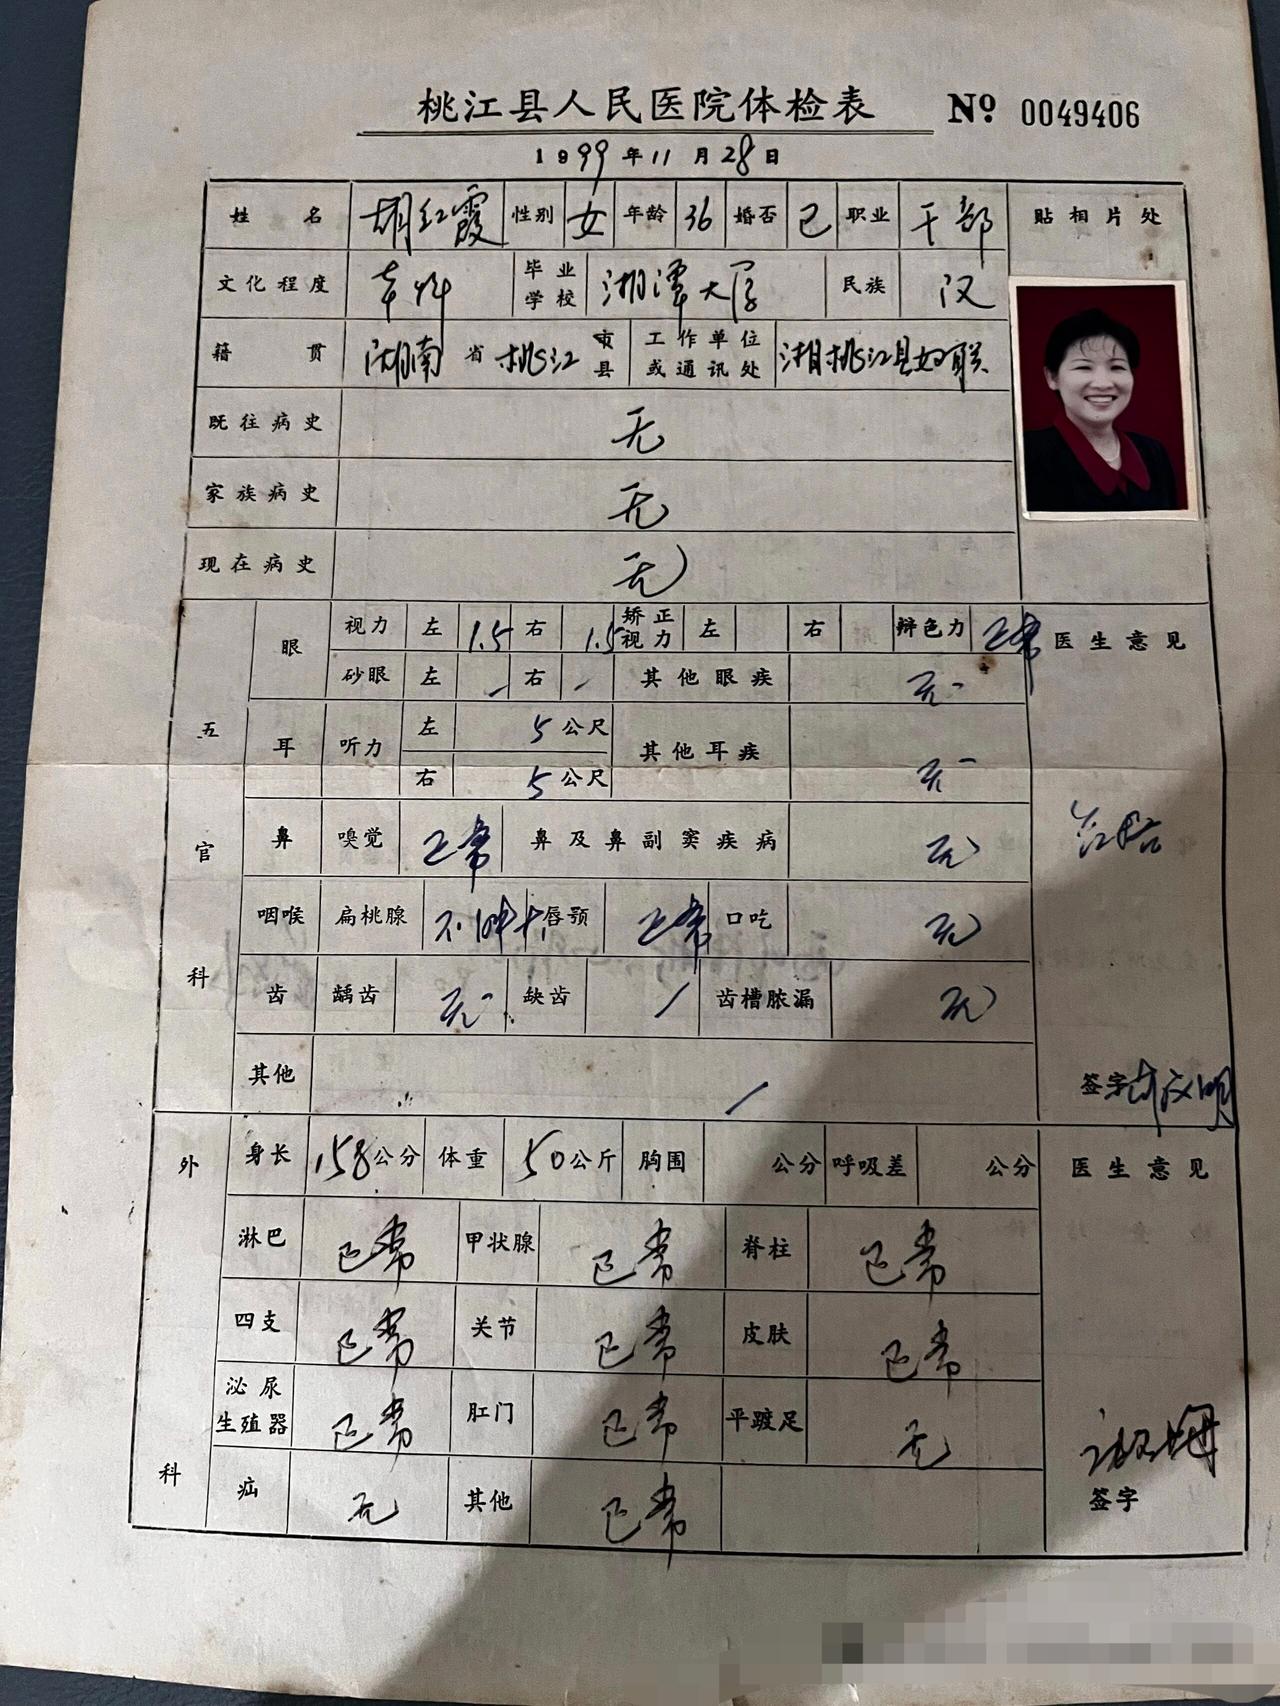 桃江县人民医院体检表 № 0049406
1999年11月28日
姓名 胡红霞 性别 女 年龄 36 婚否 已 职业 干部 贴相片处
文化程度 本科 毕业学校 湘潭大学 民族 汉
籍贯 湖南省桃江市县 工作单位或通讯处 湖桃江县妇联
既往病史 无
家族病史 无
现在病史 无
五官科 眼 视力 左 1.5 右 1.5 矫正视力 左 右 辩色力 正常 医生意见
砂眼 左 - 右 - 其他眼疾 无
耳 听力 左 5公尺 其他耳疾 无
右 5公尺
鼻 嗅觉 正常 鼻及鼻副窦疾病 无
咽喉 扁桃腺 不肿大 唇颚 正常 口吃 无
齿 龋齿 无 缺齿 / 齿槽脓漏 无
其他 / 签字
外科 身长 158公分 体重 50公斤 胸围 公分 呼吸差 公分 医生意见
淋巴 正常 甲状腺 正常 脊柱 正常
四支 正常 关节 正常 皮肤 正常
泌尿生殖器 正常 肛门 正常 平蹠足 无
疝 无 其他 正常 签字